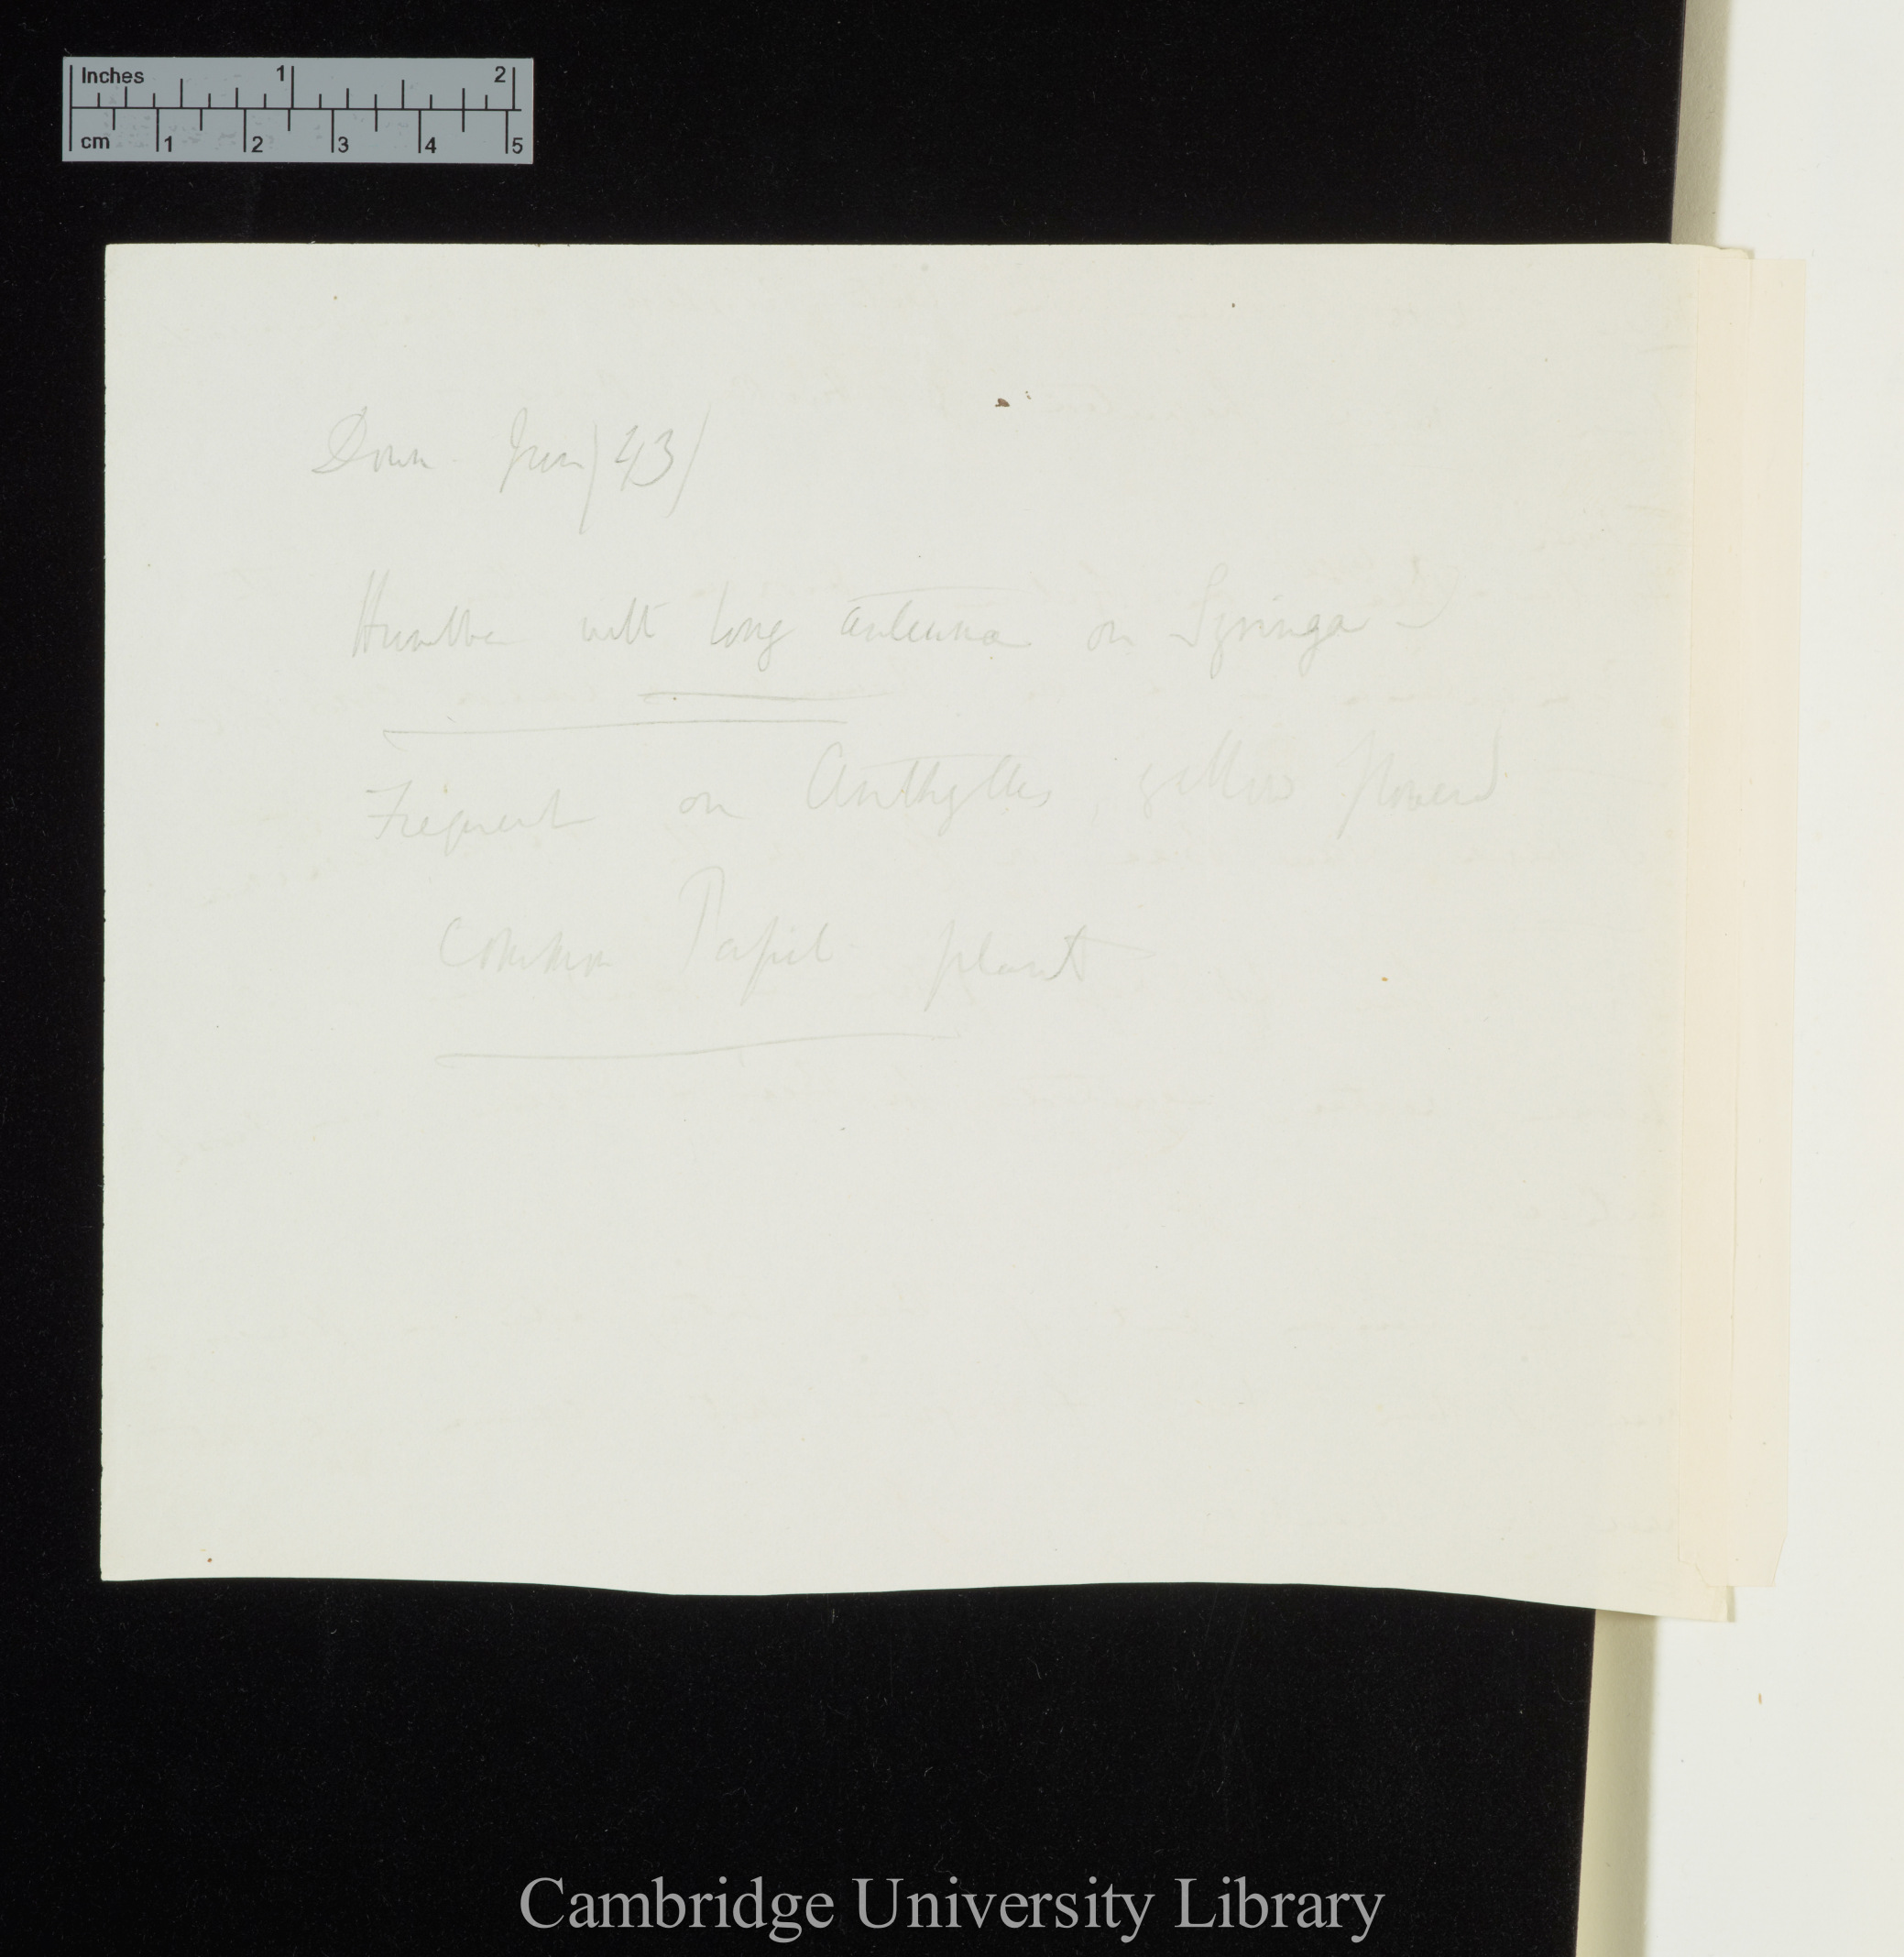 Inches 1 2
cm 1 2 3 4 5
Down June/43/
Humble with long antenna on Syringa
Frequent on Anthyllis, yellow flowered
common Papil. plant
Cambridge University Library